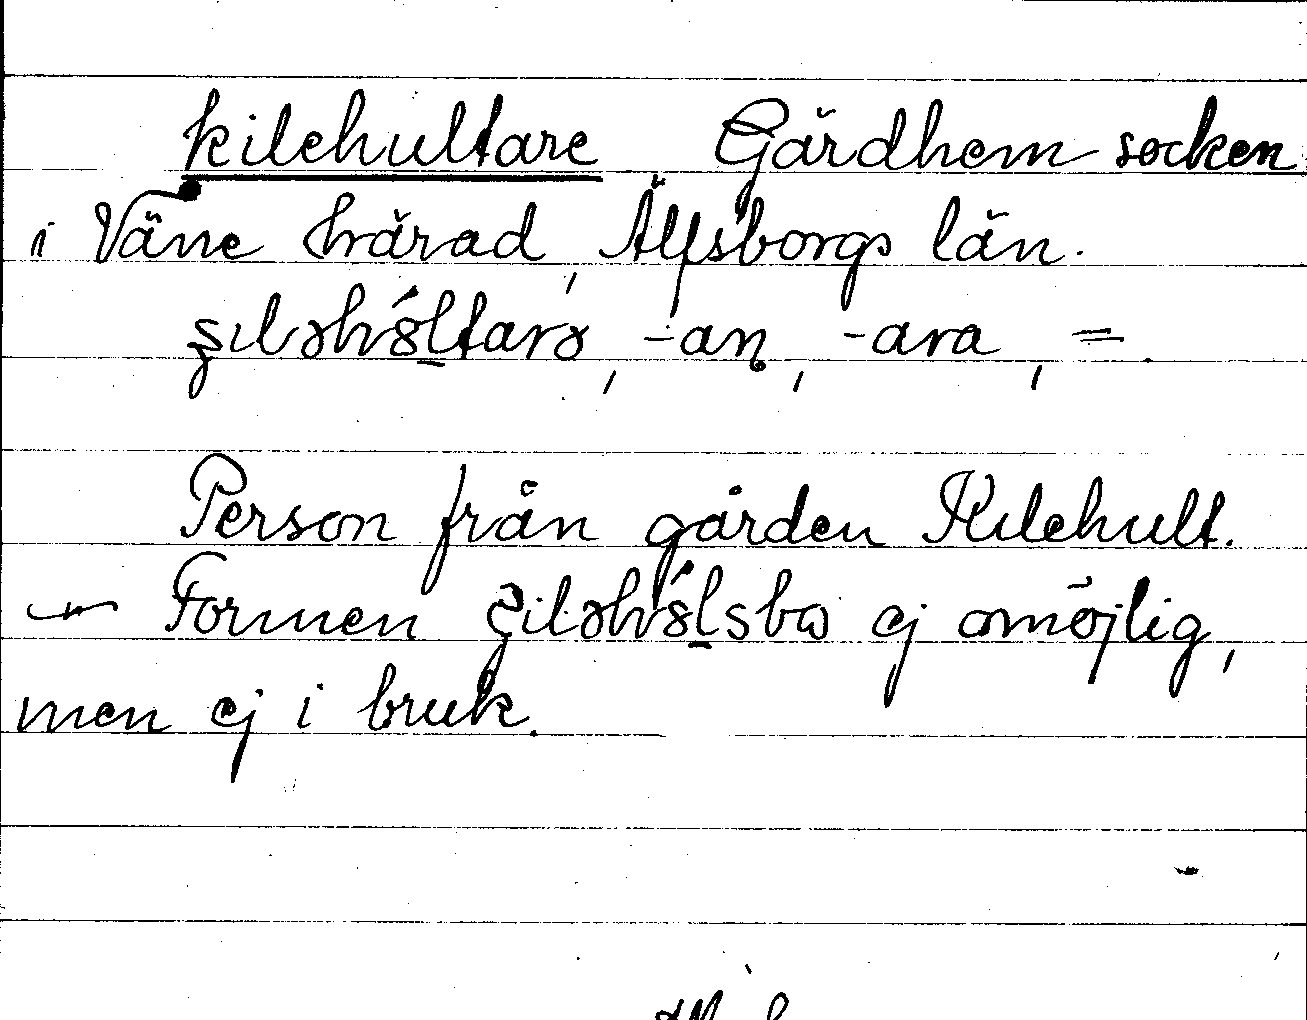 kilehultare Gärdhem socken
i Väne härad, Älfsborgs län.
ʂiləhó̤ltarə, -aṇ, -ara, =.
Person från gården Kilehult.
— Formen
ej omöjlig,
men ej i bruk.